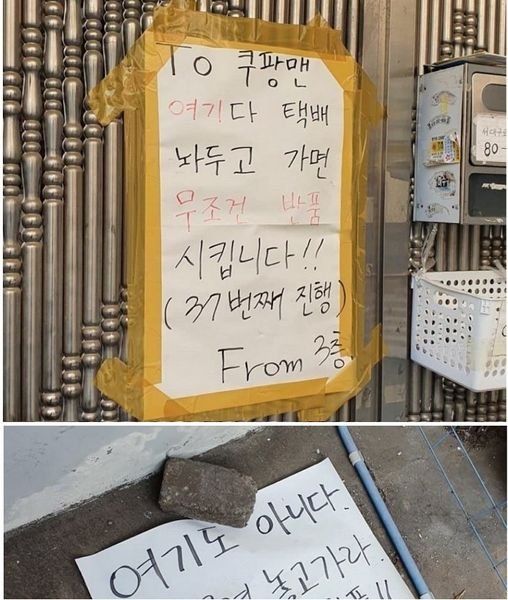 To 쿠팡맨
여기다 택배
놔두고 가면
무조건 반품
시킵니다!!
(37번째 진행)
From 3층
서대구로
80-
여기도 아니다.
놓고가라.